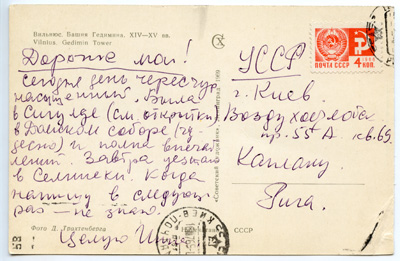 Вильнюс. Башня Гедимина. XIV—XV вв.
Vilnius. Gedimin Tower
Дорогие мои!
Сегодня день чересчур
насыщенный. Была
в Сигулде (см. открытки)
в Домском соборе (чу-
десно) и полна впечат-
лений. Завтра уезжаю
в Когда
напишу в следующ.
раз — не знаю.
Целую
Фото Д. Трахтенберга
СССР
«Советский
ПОЧТА СССР
4 КОП.
1966
УССР
г. Киев
Воздухофлотск
пр. 55 А кв. 69.
Каплану
Рига.
КИЕВ